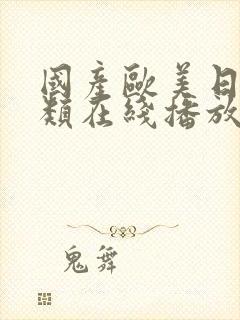 國產歐美日
類在綫播放
鬼舞